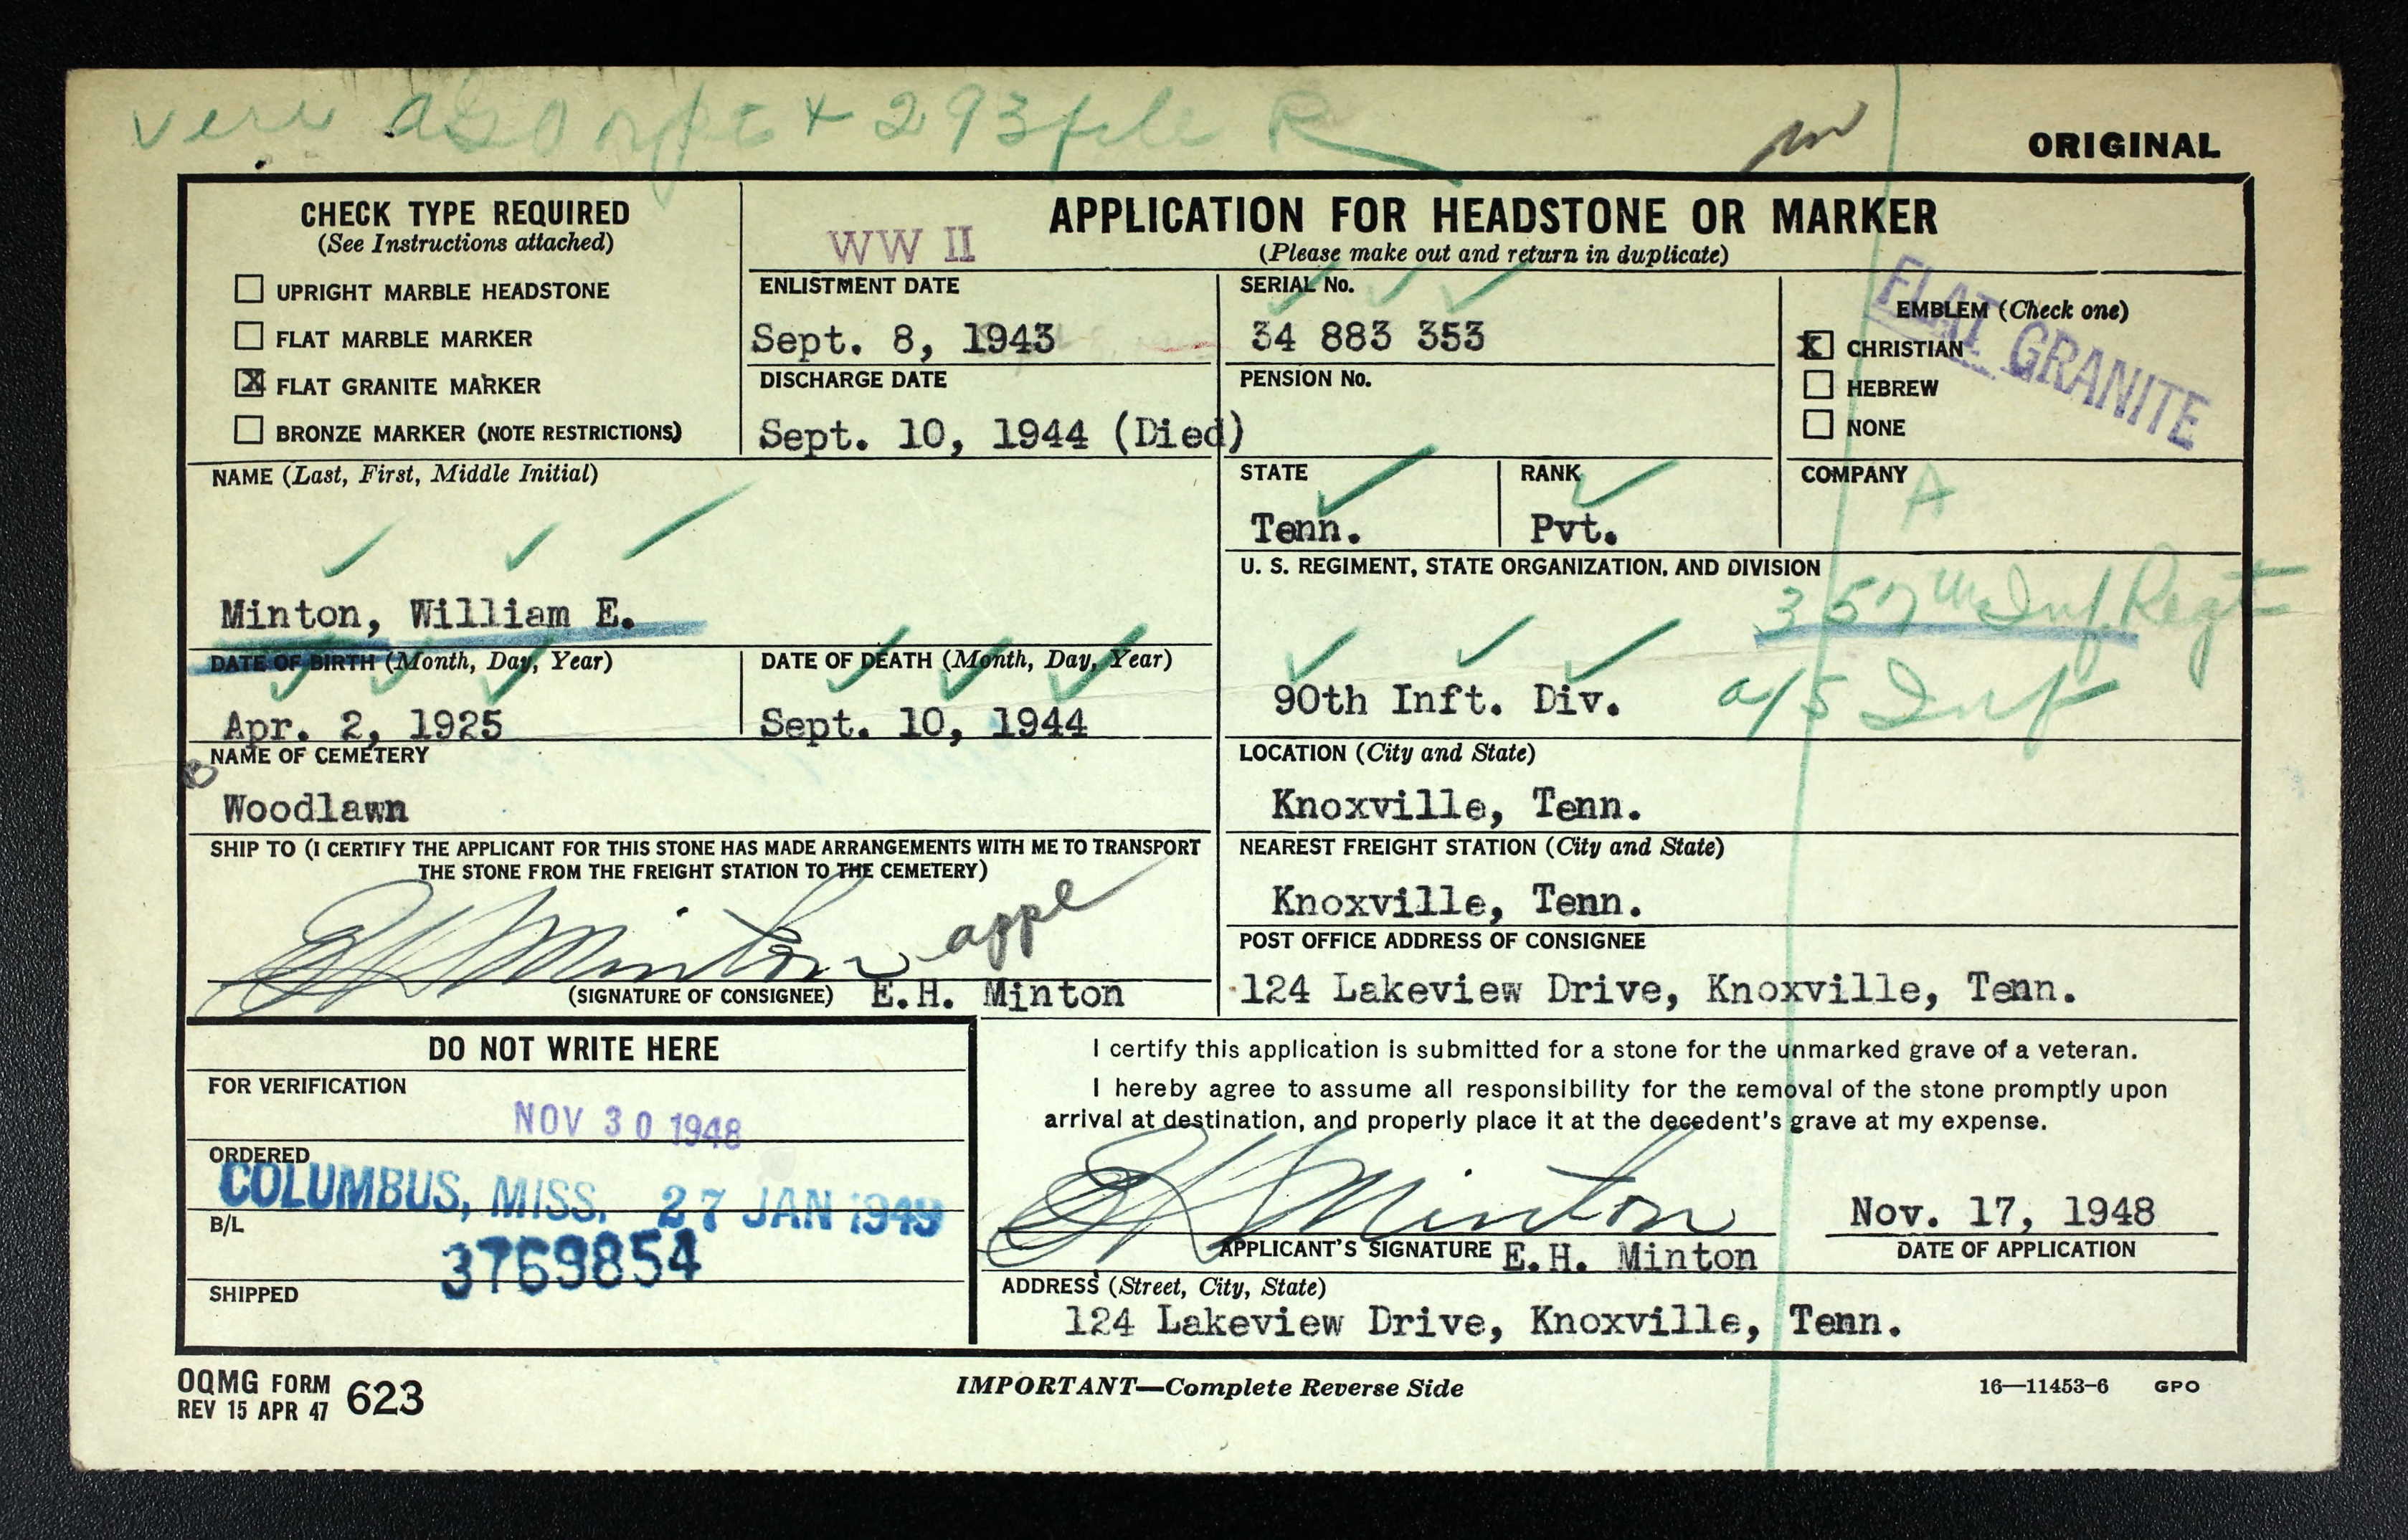 veri AGO rpt + 293 file R
ORIGINAL
CHECK TYPE REQUIRED
(See Instructions attached)
☐ UPRIGHT MARBLE HEADSTONE
☐ FLAT MARBLE MARKER
☒ FLAT GRANITE MARKER
☐ BRONZE MARKER (NOTE RESTRICTIONS)
WW II
APPLICATION FOR HEADSTONE OR MARKER
(Please make out and return in duplicate)
ENLISTMENT DATE
Sept. 8, 1943
DISCHARGE DATE
Sept. 10, 1944 (Died)
SERIAL No.
34 883 353
PENSION No.
EMBLEM (Check one)
☒ CHRISTIAN
☐ HEBREW
☐ NONE
FLAT GRANITE
NAME (Last, First, Middle Initial)
Minton, William E.
STATE
Tenn.
RANK
Pvt.
COMPANY
A
U. S. REGIMENT, STATE ORGANIZATION, AND DIVISION
357th Inf. Regt
90th Inft. Div. a/s Inf
DATE OF BIRTH (Month, Day, Year)
Apr. 2, 1925
DATE OF DEATH (Month, Day, Year)
Sept. 10, 1944
NAME OF CEMETERY
Woodlawn
LOCATION (City and State)
Knoxville, Tenn.
SHIP TO (I CERTIFY THE APPLICANT FOR THIS STONE HAS MADE ARRANGEMENTS WITH ME TO TRANSPORT
THE STONE FROM THE FREIGHT STATION TO THE CEMETERY)
E H Minton appl
(SIGNATURE OF CONSIGNEE) E.H. Minton
NEAREST FREIGHT STATION (City and State)
Knoxville, Tenn.
POST OFFICE ADDRESS OF CONSIGNEE
124 Lakeview Drive, Knoxville, Tenn.
DO NOT WRITE HERE
FOR VERIFICATION
NOV 30 1948
ORDERED
COLUMBUS, MISS. 27 JAN 1949
B/L
3769854
SHIPPED
I certify this application is submitted for a stone for the unmarked grave of a veteran.
I hereby agree to assume all responsibility for the removal of the stone promptly upon
arrival at destination, and properly place it at the decedent's grave at my expense.
E H Minton
APPLICANT'S SIGNATURE E.H. Minton
Nov. 17, 1948
DATE OF APPLICATION
ADDRESS (Street, City, State)
124 Lakeview Drive, Knoxville, Tenn.
OQMG FORM 623
REV 15 APR 47
IMPORTANT—Complete Reverse Side
16—11453-6 GPO